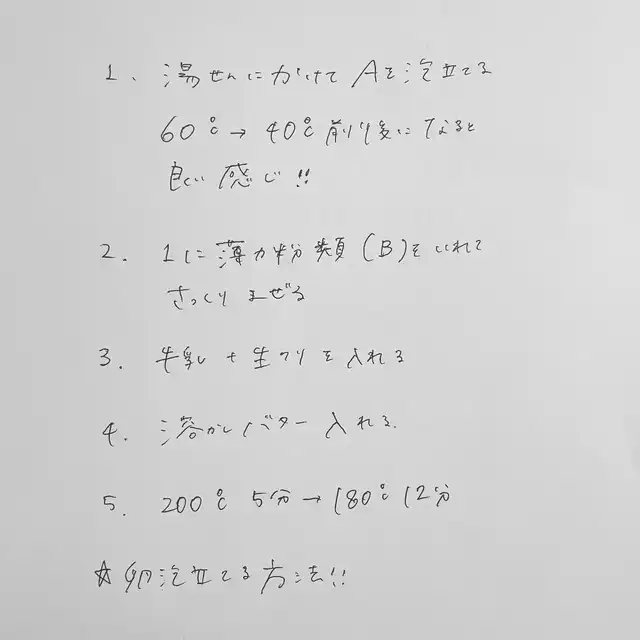 1. 湯せんにかけてAを泡立てる
60℃→40℃前後になると
良い感じ!!
2. 1に薄力粉類(B)をいれて
さっくりまぜる
3. 牛乳+生クリを入れる
4. 溶かしバター入れる.
5. 200℃ 5分→180℃ 12分
☆卵泡立てる方法!!